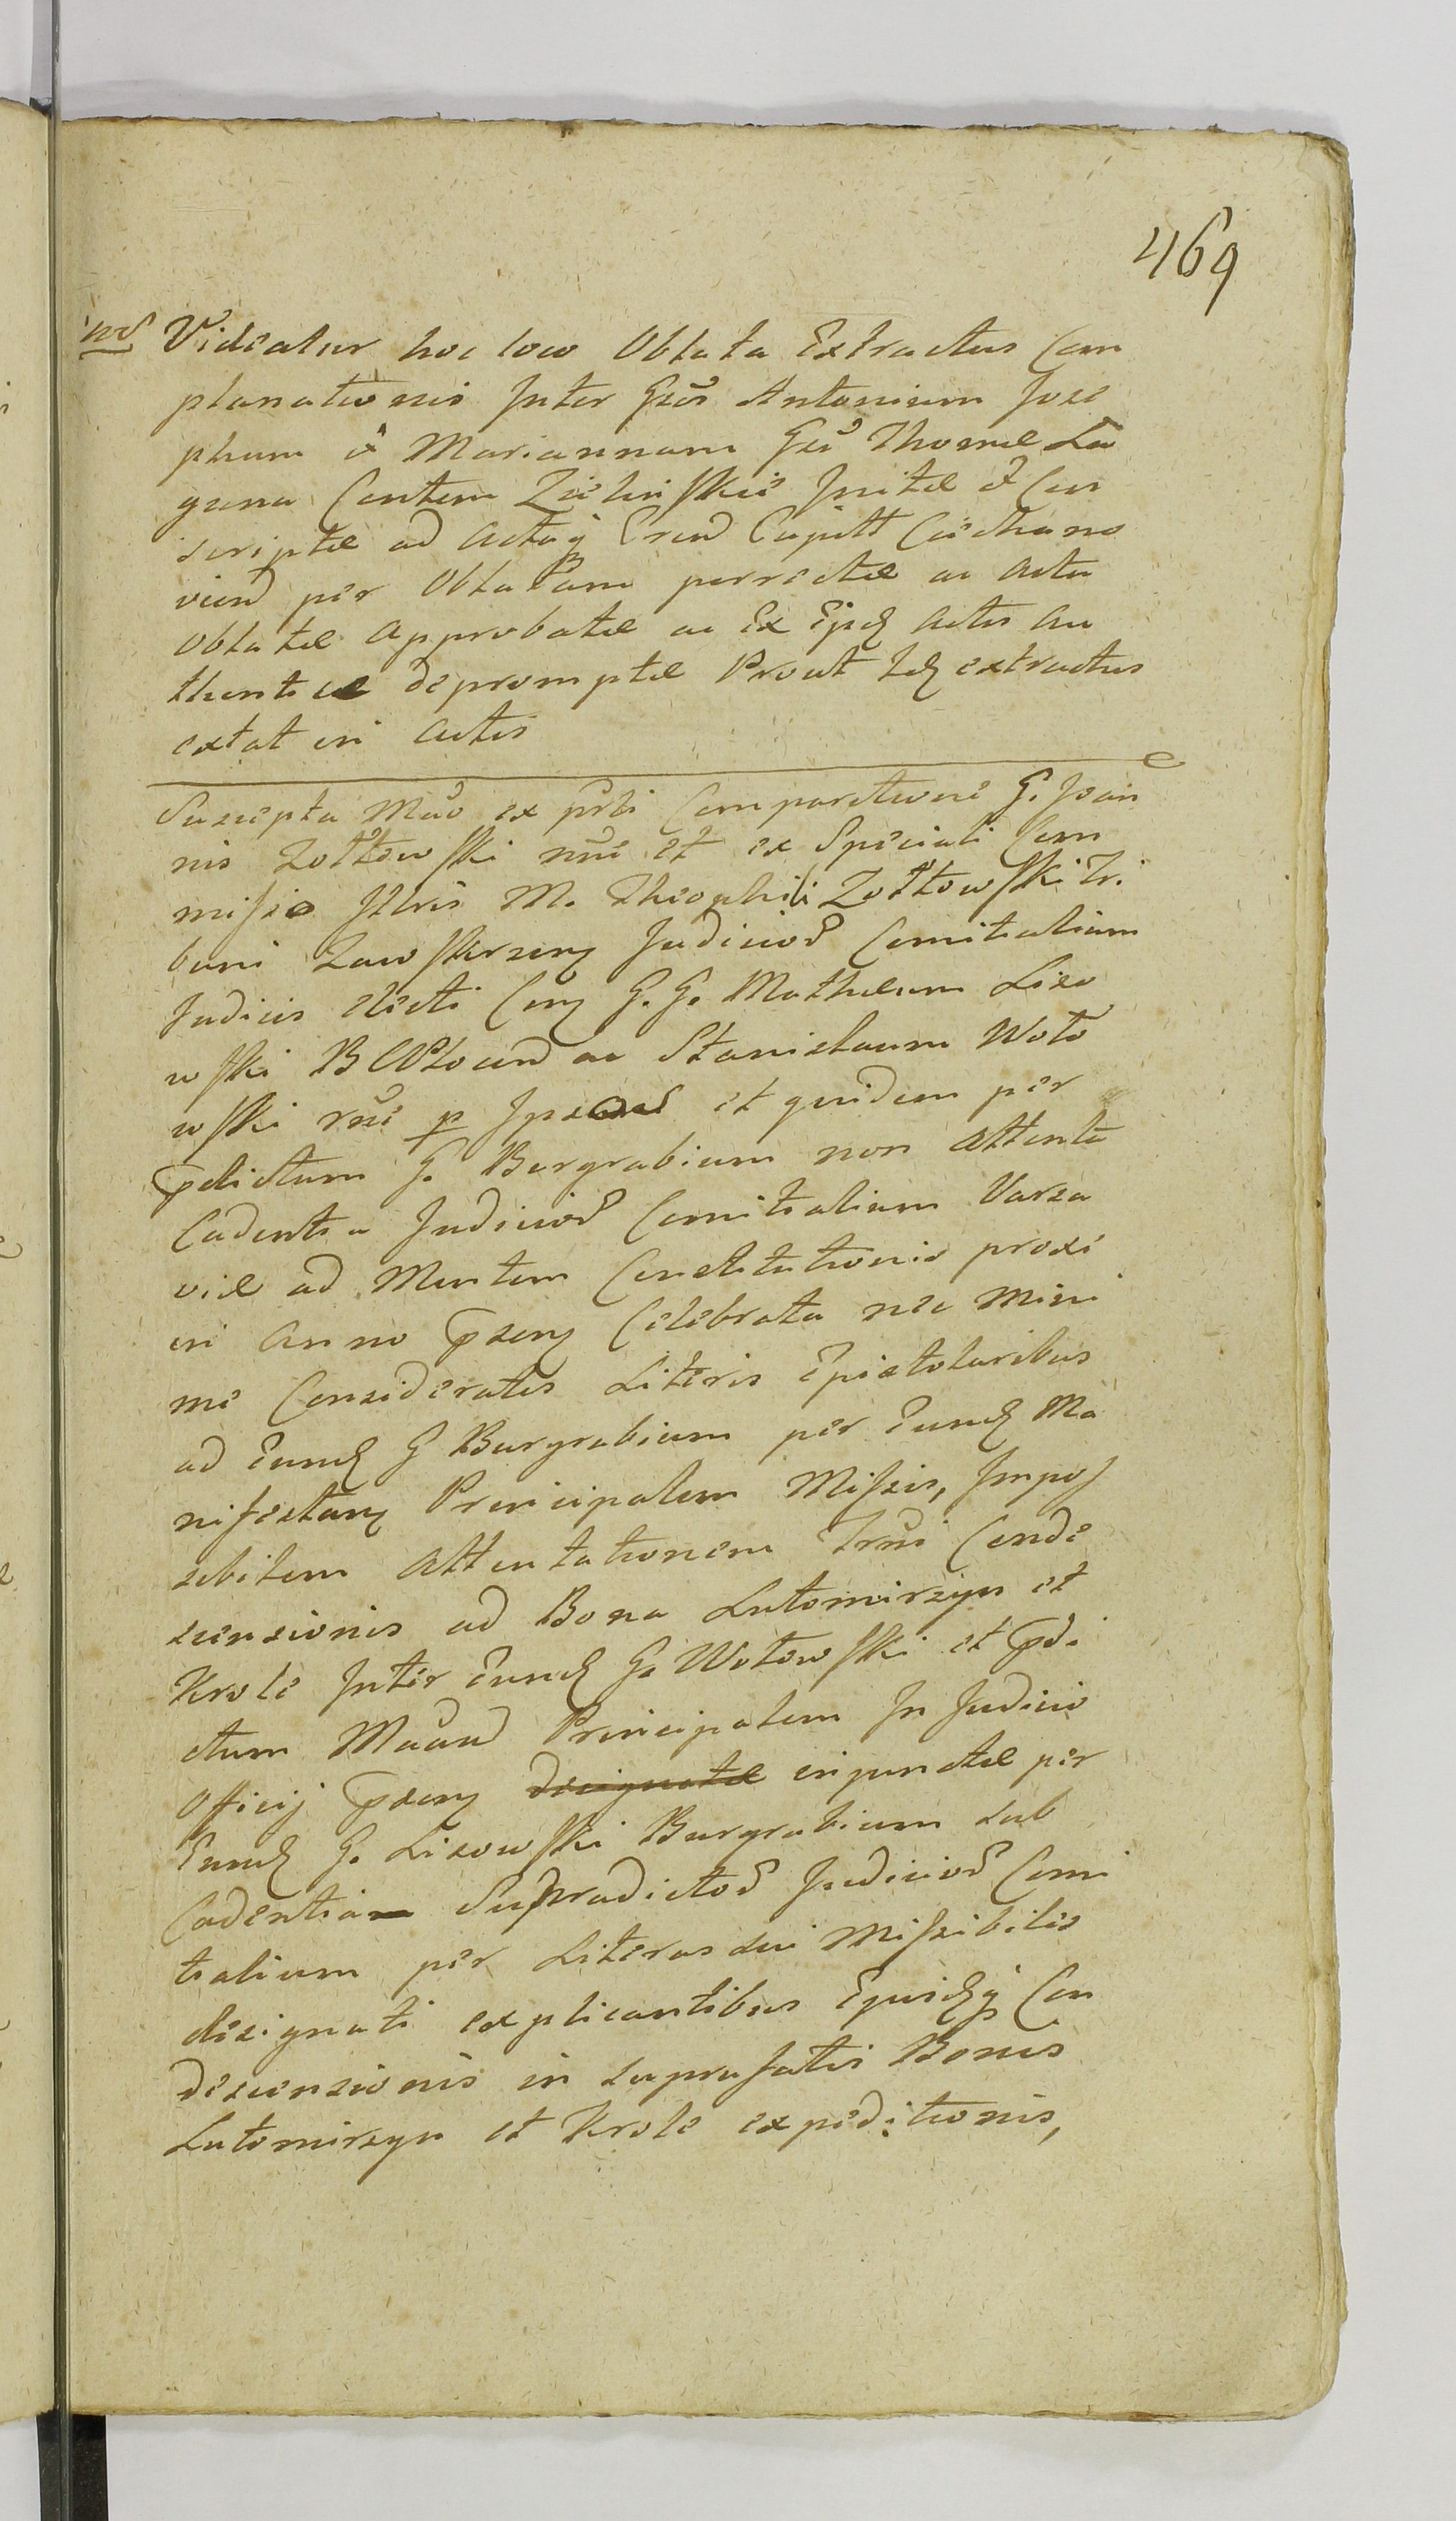 469
nd Videatur hoc loco Oblata Extractus Com
planationis Inter Gsos Antonium Jose
phum et Mariannam Gsi Thomæ La
guna Contem Zielinskie Initæ et Con
scriptæ ad Actaq Crend Capitt Ciechano
viend per Oblatam porrectæ ac Actu
Oblatæ Approbatæ ac Ex Ejusd Actis Au
thenticæ depromptæ Prout Id extractus
extat in Actis
Suscepta Mão ex prti Comparitione G. Joan
nis Zołtowski nni et ex Speciali Com
misso Illris M. Theophili Zołtowski Tri
buni Zawskrzen Judiciod Comitialium
Judicis electi Con G. G. Mathæum Liso
wski B C Ploicend ac Stanislaum Woło
wski rne p Ipsos et quidem per
pdictum G. Burgrabium non Attenta
Cadentia Judiciod Comitialium Varsa
viæ ad Mentem Constitutionis proxi
in Anno psen Celebrata nec Mini
me Consideratis Literis Epistolaribus
ad Eund G Burgrabium per Eund Ma
nifestan Principalem Missis, Impos
sibilem Attentationem Trni Conde
scensionis ad Bona Lutomirzyn et
Krole Inter Eund G. Wołowski et pdi
ctum Maand Principalem In Judicio
Officij psen designatæ injunctæ per
Eund G. Lisowski Burgrabium sub
Cadentiam Supradictod Judiciod Comi
tialium per Literas sui Missibiles
designati explicantibus Ejusdq Con
descensionis in suprafatis Bonis
Lutomirzyn et Krole expeditionis,